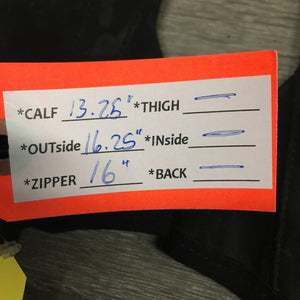 *CALF 13.25" *THIGH —
*OUTside 16.25" *INside —
*ZIPPER 16" *BACK —